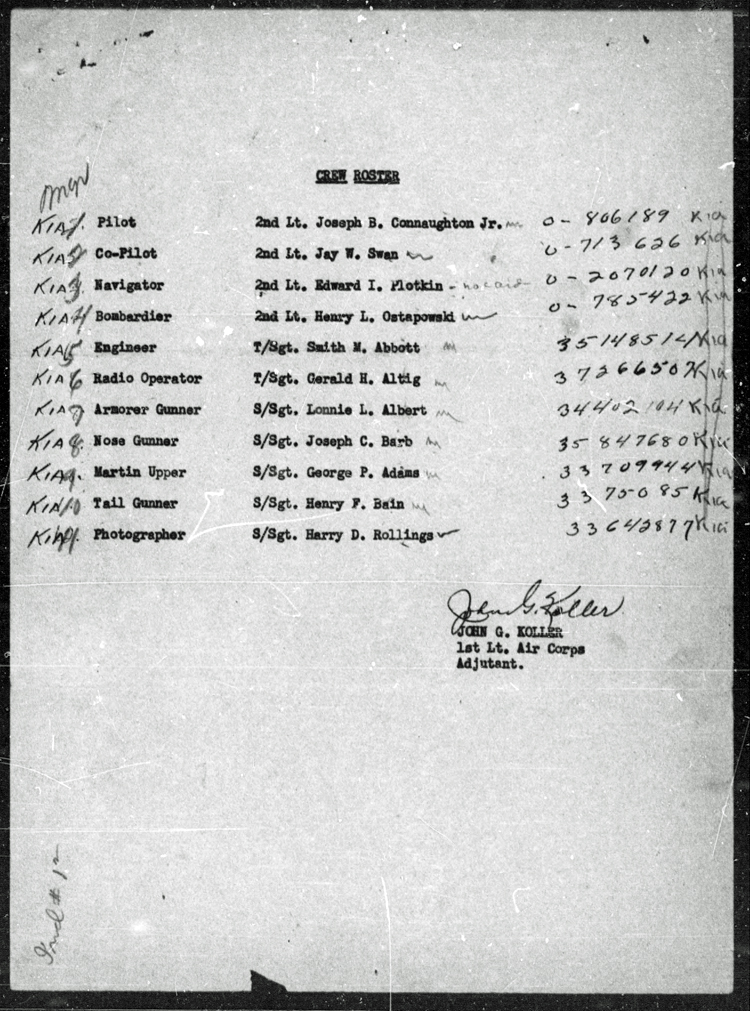 CREW ROSTER
KIA 1. Pilot 2nd Lt. Joseph B. Connaughton Jr. 0-806189 Kia
KIA 2 Co-Pilot 2nd Lt. Jay W. Swan 0-713626 Kia
KIA 3 Navigator 2nd Lt. Edward I. Plotkin - no card 0-2070120 Kia
KIA 4 Bombardier 2nd Lt. Henry L. Ostapowski 0-785422 Kia
KIA 5 Engineer T/Sgt. Smith M. Abbott 35148514 Kia
KIA 6 Radio Operator T/Sgt. Gerald H. Altig 37266507 Kia
KIA 7 Armorer Gunner S/Sgt. Lonnie L. Albert 34402104 Kia
KIA 8. Nose Gunner S/Sgt. Joseph C. Barb 35847680 Kia
KIA 9. Martin Upper S/Sgt. George P. Adams 33709944 Kia
KIA 10 Tail Gunner S/Sgt. Henry F. Bain 3375085 Kia
KIA 11. Photographer S/Sgt. Harry D. Rollings 33642877 Kia
John G. Koller
JOHN G. KOLLER
1st Lt. Air Corps
Adjutant.
Incl # 12